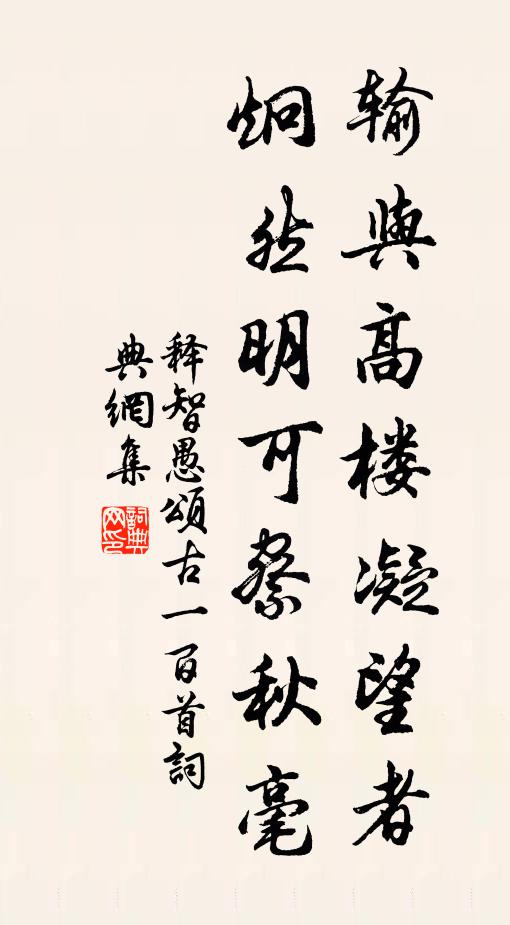 输與高楼凝望者
炯然明可察秋毫
释智愚頌古一百首詞
典網集
詞典
网印